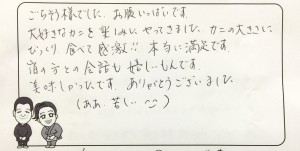 ごちそう様でした。お腹いっぱいです。
大好きなカニを楽しみにやってきました。カニの大きさに
びっくり 食べて感激!! 本当に満足です。
宿の方との会話も嬉しいもんです。
美味しかったです。ありがとうございました。
(ああ、苦しい